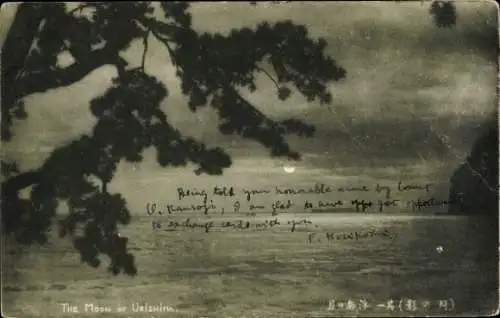 Being told your honourable name by Count
V. Kansogi, I am glad to have oppo got opportunity
to exchange cards with you.
THE MOON OF URISHIMA.
(月の影)